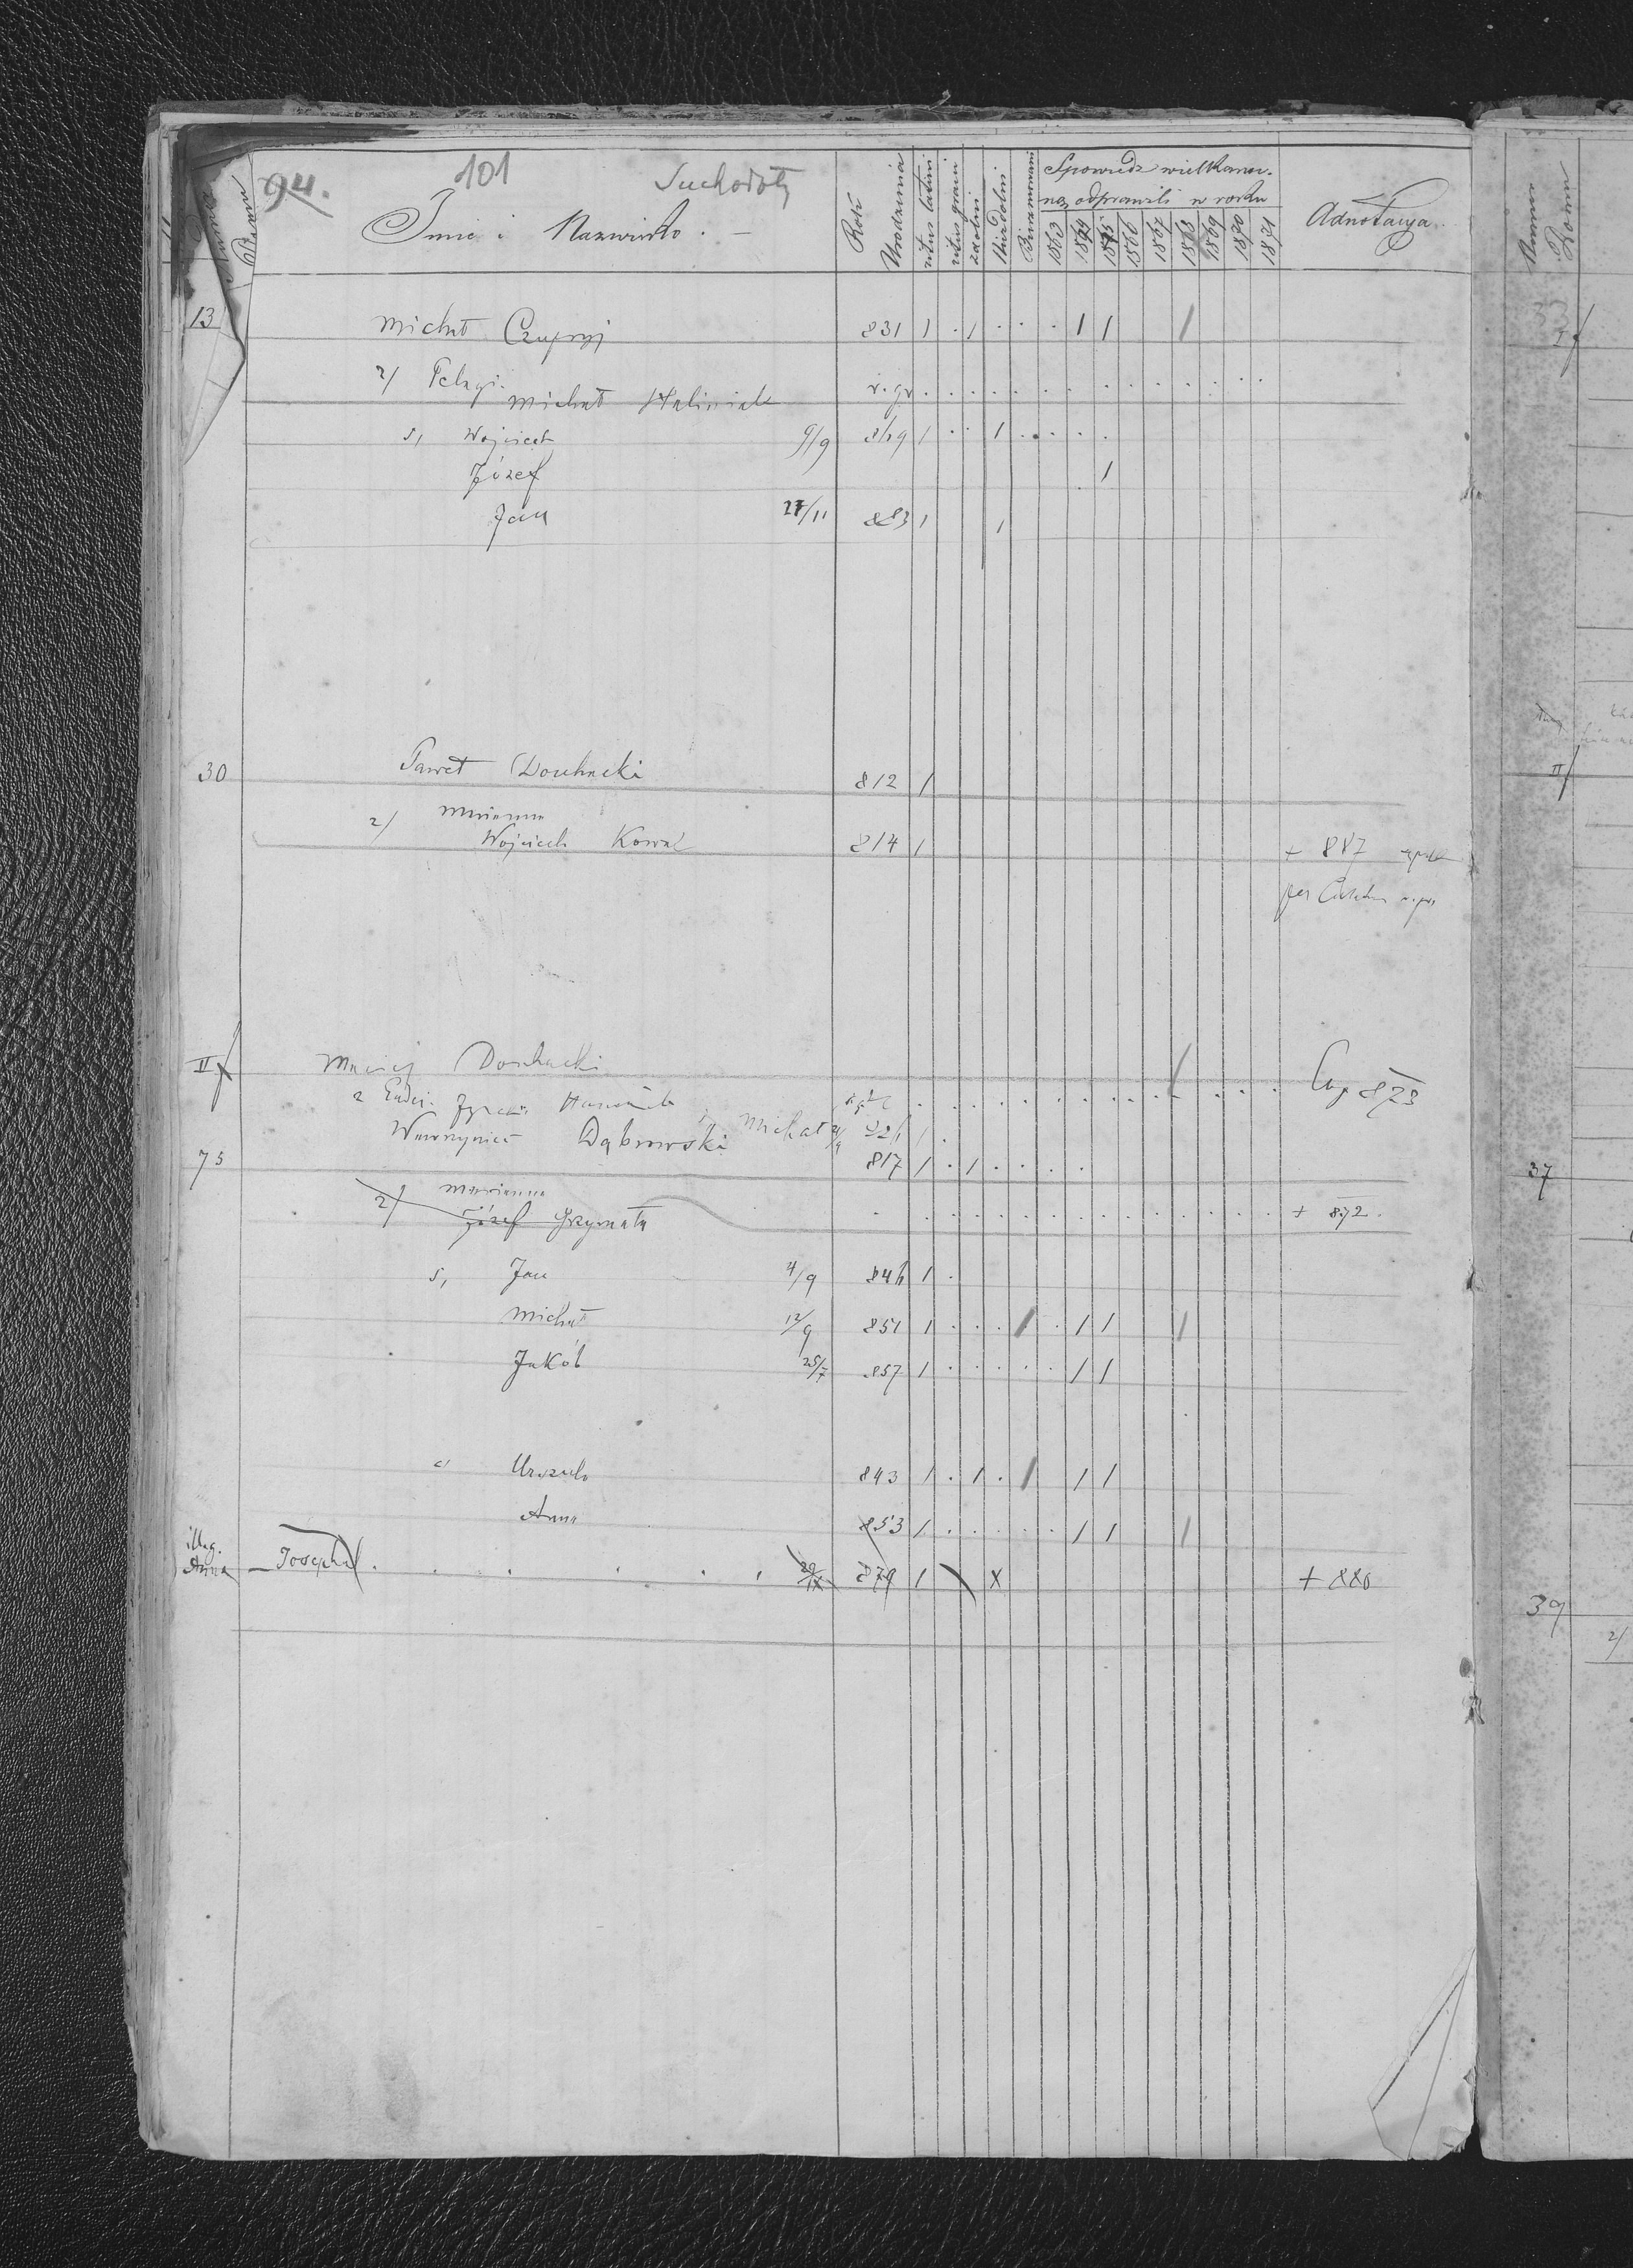 94. 101 Suchodoły
Numer Domu
Imie i Nazwisko.
Rok Urodzenia
ritus latini
ritus graeci
zdolni
Niezdolni
Bierzmowani
Spowiedź wielkanoc-
ną odprawili w roku
1863 1864 1865 1866 1867 1868 1869 1870 1871
Adnotacya
13 Michał Czupryj 831 1 . 1 . . . 1 1 1
2/ Pelagi.
Michał Haliniak r. gr.
s, Wojciech 9/9 1 . . 1
Józef 1
Jan 27/11 883 1 1
30 Paweł Douhacki 812 1
2/ Marianna
Wojciech Kowal 814 1 + 887
per
II Maciej Douhacki
2 Michał Cop 873
Wawrzyniec Dąbrowski
75 817 1 . 1
2/ Marianna
Józef Grzymała + 872.
s, Jan 4/9 846 1 .
Michał 12/9 851 1 . . . 1 . 1 1 1
Jakób 25/7 857 1 . . . . . 1 1
Urszula 843 1 . 1 . 1 1 1
Anna 853 1 . . . . . 1 1 1
illeg.
Anna Josepha 29/IX 879 1 X + 880
Numer Domu
II
37
39
2/